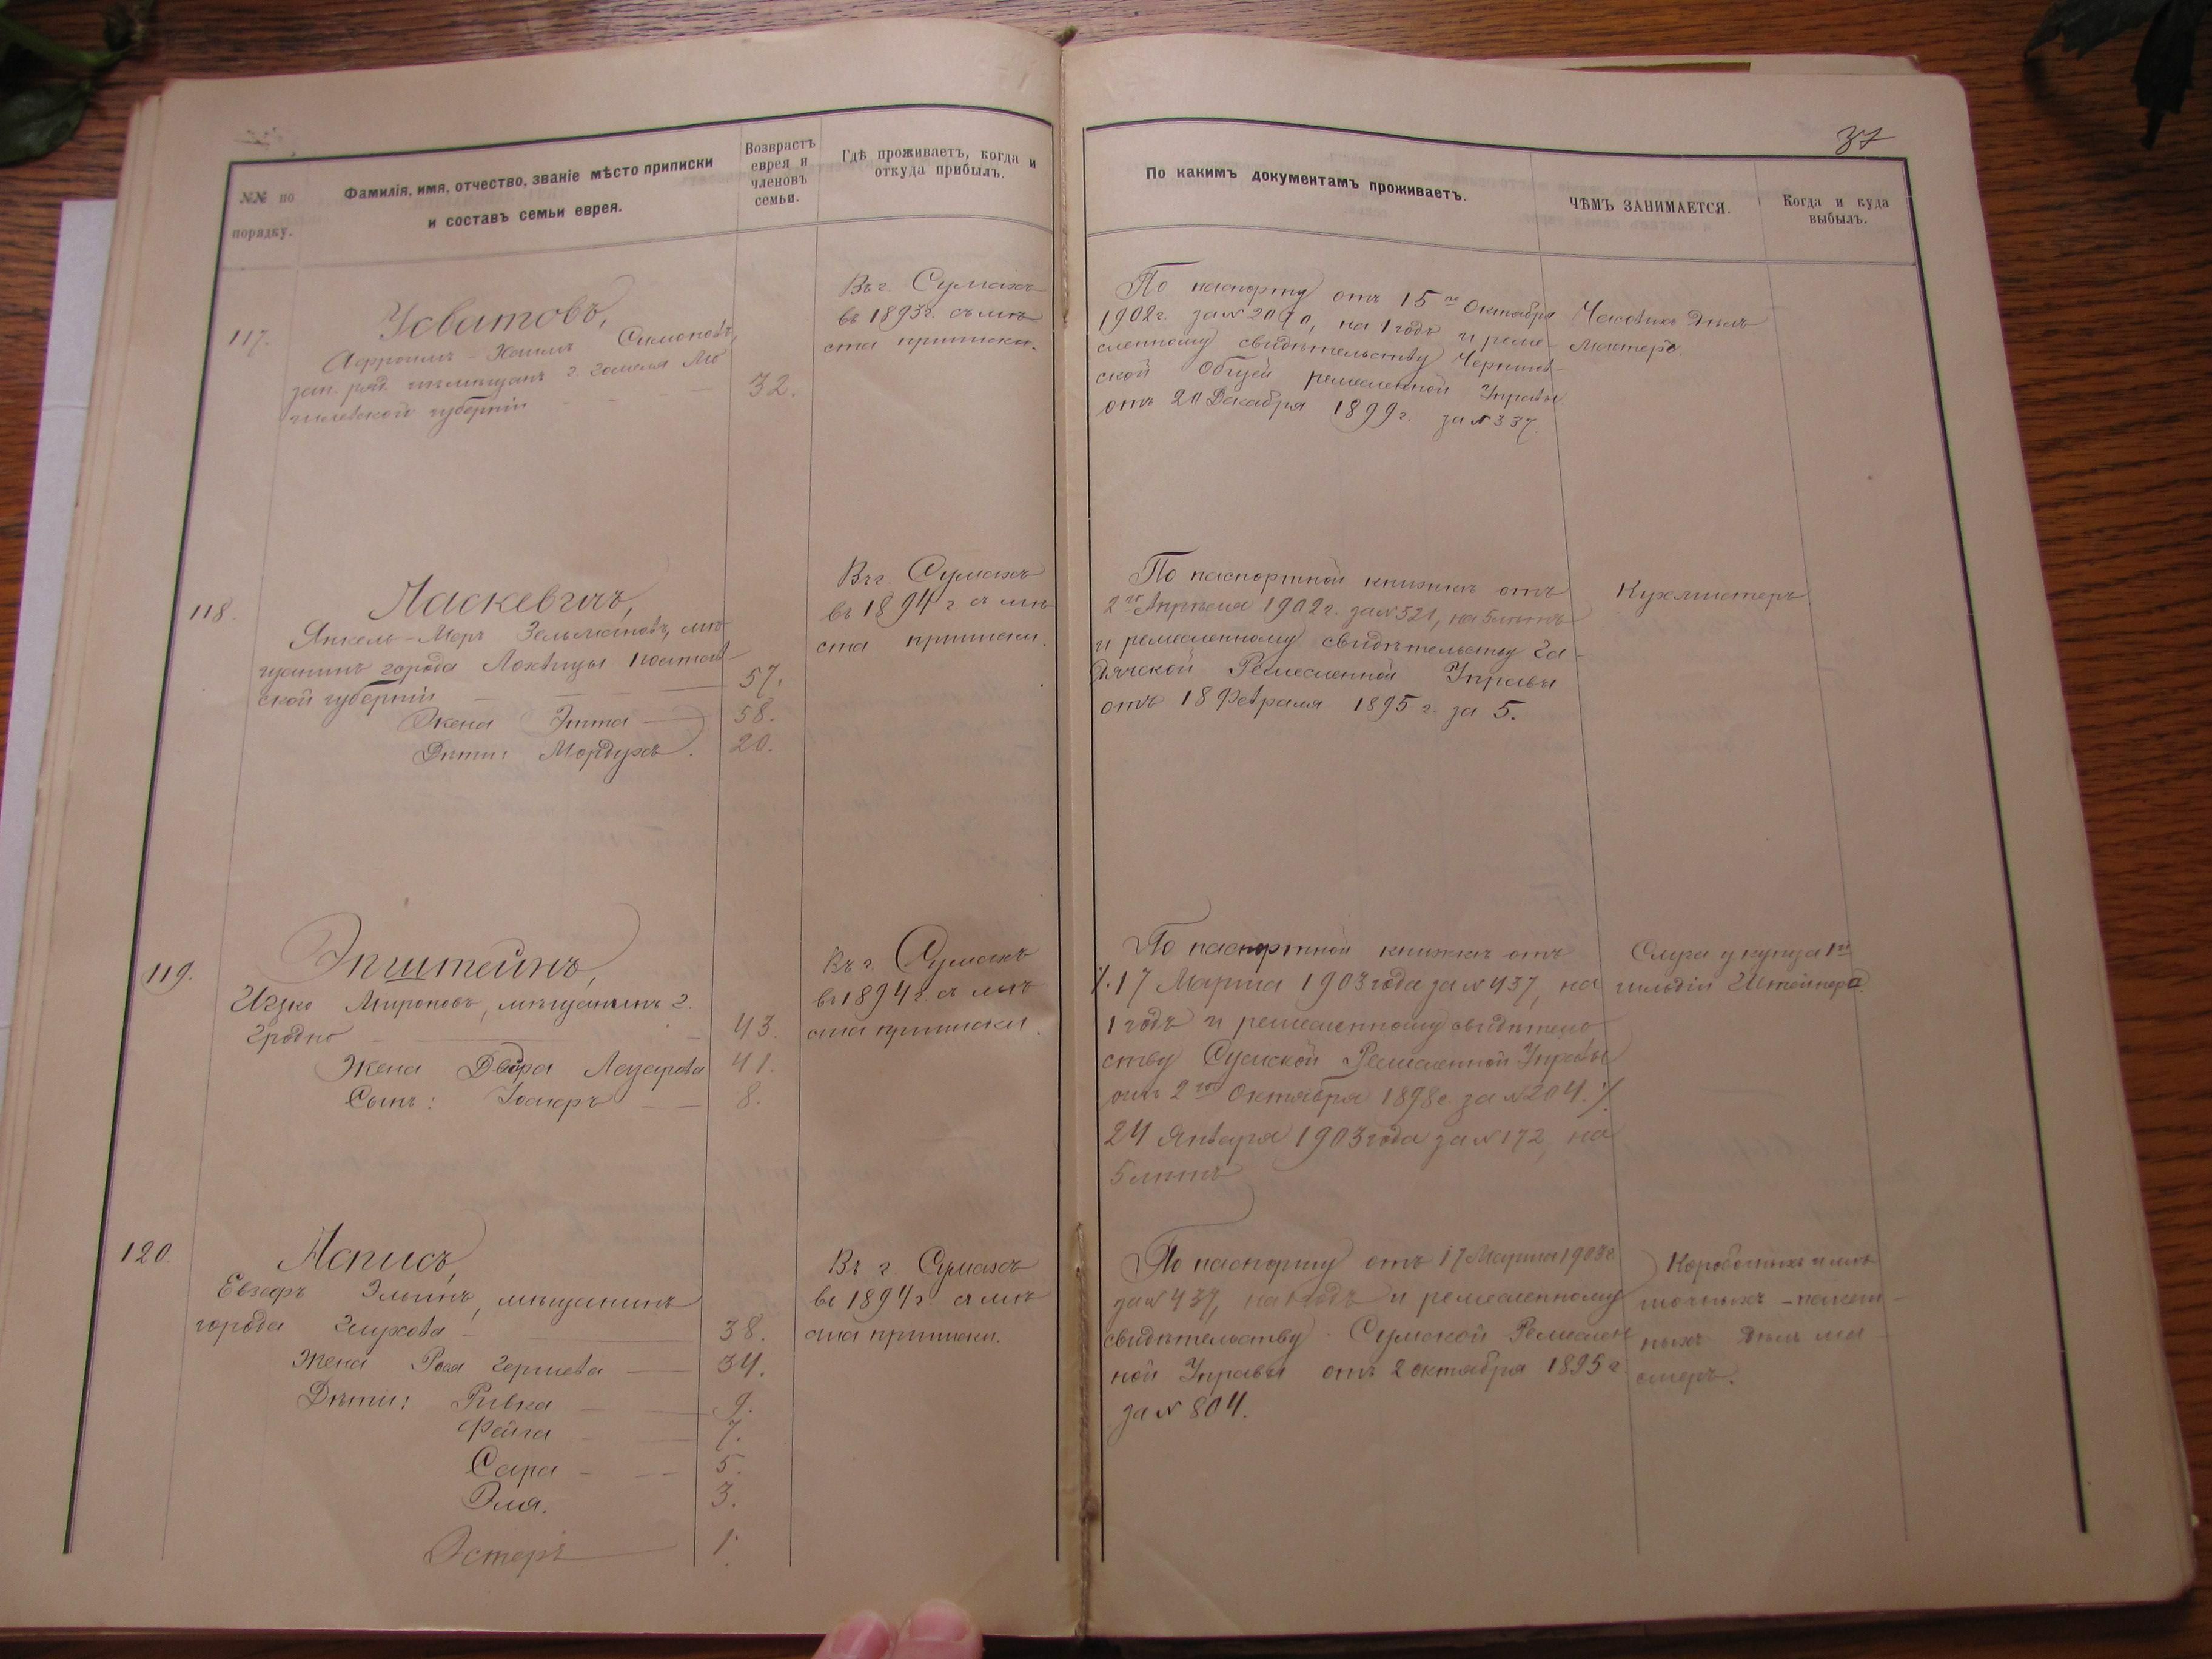 37
№№ по порядку.
Фамилія, имя, отчество, званіе мѣсто приписки
и составъ семьи еврея.
Возврастъ
еврея и
членовъ
семьи.
Гдѣ проживаетъ, когда и
откуда прибылъ.
По какимъ документамъ проживаетъ.
ЧѢМЪ ЗАНИМАЕТСЯ.
Когда и куда
выбылъ.
117.
Усватовъ,
Афроимъ-Хаимъ Симоновъ,
зап. ряд. изъ мѣщанъ г. Гомеля Мо
гилевской губерніи
32.
Въ г. Сумахъ
въ 1893г. съ мѣ
ста приписки.
По паспорту отъ 15го Октября
1902г. за № 2070, на 1 годъ и реме-
сленному свидѣтельству
ской Общей ремесленной Управы
отъ 20 Декабря 1899г. за № 337.
Часовыхъ дѣлъ
мастеръ.
118.
Ласкевичъ,
Янкель-Меръ Зельмановъ, мѣ
щанинъ города Лохвицы Полтав
ской губерніи
57.
Жена Этта
58.
Дѣти: Мордухъ.
20.
Въ г. Сумахъ
въ 1894 г. съ мѣ
ста приписки.
По паспортной книжкѣ отъ
2го Апрѣля 1902г. за № 521, на 5 лѣтъ
и ремесленному свидѣтельству Га-
дячской Ремесленной Управы
отъ 18 Февраля 1895 г. за 5.
Кухмистеръ
119.
Эпштейнъ,
Ицко Мироновъ, мѣщанинъ г.
Гродно
43.
Жена Двера Лазарева
41.
Сынъ:
8.
Въ г. Сумахъ
въ 1894г. съ мѣ
ста приписки.
По паспортной книжкѣ отъ
17 Марта 1903 года за № 437, на
1 годъ и ремесленному свидѣтель
ству Сумской Ремесленной Управы
отъ 2го Октября 1898г. за № 204.
24 Января 1903 года за № 172, на
5 лѣтъ
Слуга у купца 1й
гильдіи Штейнера
120.
Аписъ,
Евзеръ Эльинъ, мѣщанинъ
города Глухова
38.
Жена Роза Гершева
34.
Дѣти: Ривка
9.
Фейга
7.
Сара
5.
Эля.
3.
Эстеръ
1.
Въ г. Сумахъ
въ 1894г. съ мѣ
ста приписки.
По паспорту отъ 17 Марта 1903г.
за № 437, на 1 годъ и ремесленному
свидѣтельству Сумской Ремеслен
ной Управы отъ 2 октября 1895 г.
за № 804.
Коробочныхъ и мѣ
шочныхъ-пакет-
ныхъ дѣлъ ма-
стеръ.